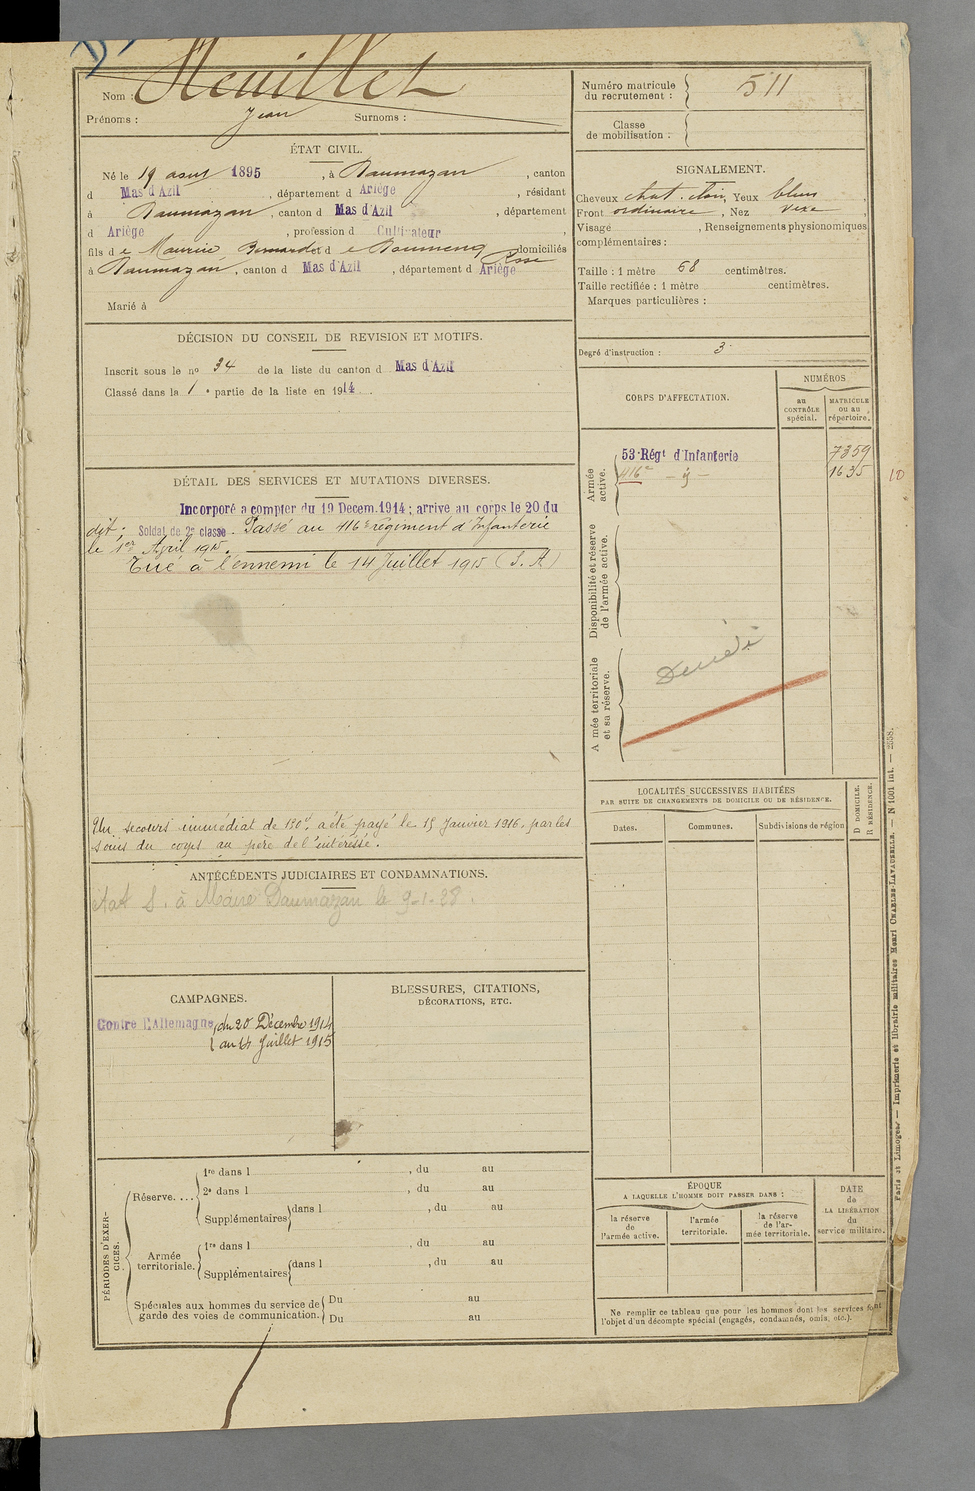 Nom : Heuillet
Prénoms : Jean Surnoms :
ÉTAT CIVIL.
Né le 19 aout 1895, à Daumazan, canton
d Mas d'Azil, département d Ariège, résidant
à Daumazan, canton d Mas d'Azil, département
d Ariège, profession d Cultivateur,
fils de Maurice, Bernard et de Daumenq Rose domiciliés
à Daumazan, canton d Mas d'Azil, département d Ariège
Marié à
DÉCISION DU CONSEIL DE REVISION ET MOTIFS.
Inscrit sous le no 34 de la liste du canton d Mas d'Azil
Classé dans la 1e partie de la liste en 1914.
DÉTAIL DES SERVICES ET MUTATIONS DIVERSES.
Incorporé a compter du 19 Decem. 1914 ; arrivé au corps le 20 du
dit ; Soldat de 2e classe. Passé au 416e régiment d'Infanterie
le 1er April 1915.
Tué à l'ennemi le 14 Juillet 1915
Un secours immédiat de 150f, a été payé le 15 Janvier 1916, par les
soins du corps au père de l'intéressé.
ANTÉCÉDENTS JUDICIAIRES ET CONDAMNATIONS.
état S. à Maire Daumazan le 9-1-28.
CAMPAGNES.
Contre l'Allemagne du 20 Décembre 1914
au 14 Juillet 1915
BLESSURES, CITATIONS,
DÉCORATIONS, ETC.
PÉRIODES D'EXER-
CICES.
Réserve....
1re dans l , du au
2e dans l , du au
Supplémentaires dans l , du au
Armée
territoriale.
1re dans l , du au
Supplémentaires dans l , du au
Spéciales aux hommes du service de
garde des voies de communication.
Du au
Du au
Numéro matricule
du recrutement : 511
Classe
de mobilisation :
SIGNALEMENT.
Cheveux chat. clair, Yeux bleus,
Front ordinaire, Nez vexe,
Visage , Renseignements physionomiques
complémentaires :
Taille : 1 mètre 68 centimètres.
Taille rectifiée : 1 mètre centimètres.
Marques particulières :
Degré d'instruction : 3
CORPS D'AFFECTATION.
NUMÉROS
au
CONTRÔLE
spécial.
MATRICULE
ou au
répertoire.
Armée
active.
53e Régt d'Infanterie 7359
416e 1635
10
Disponibilité et réserve
de l'armée active.
A mée territoriale
et sa réserve.
LOCALITÉS SUCCESSIVES HABITÉES
PAR SUITE DE CHANGEMENTS DE DOMICILE OU DE RÉSIDENCE.
Dates. Communes. Subdivisions de région
D DOMICILE.
R RÉSIDENCE.
ÉPOQUE
A LAQUELLE L'HOMME DOIT PASSER DANS :
la réserve
de
l'armée active.
l'armée
territoriale.
la réserve
de l'ar-
mée territoriale.
DATE
de
LA LIBÉRATION
du
service militaire.
Ne remplir ce tableau que pour les hommes dont les services font
l'objet d'un décompte spécial (engagés, condamnés, omis, etc.).
Paris et Limoges. — Imprimerie et librairie militaires Henri CHARLES-LAVAUZELLE. — N 1001 int. — 2358.